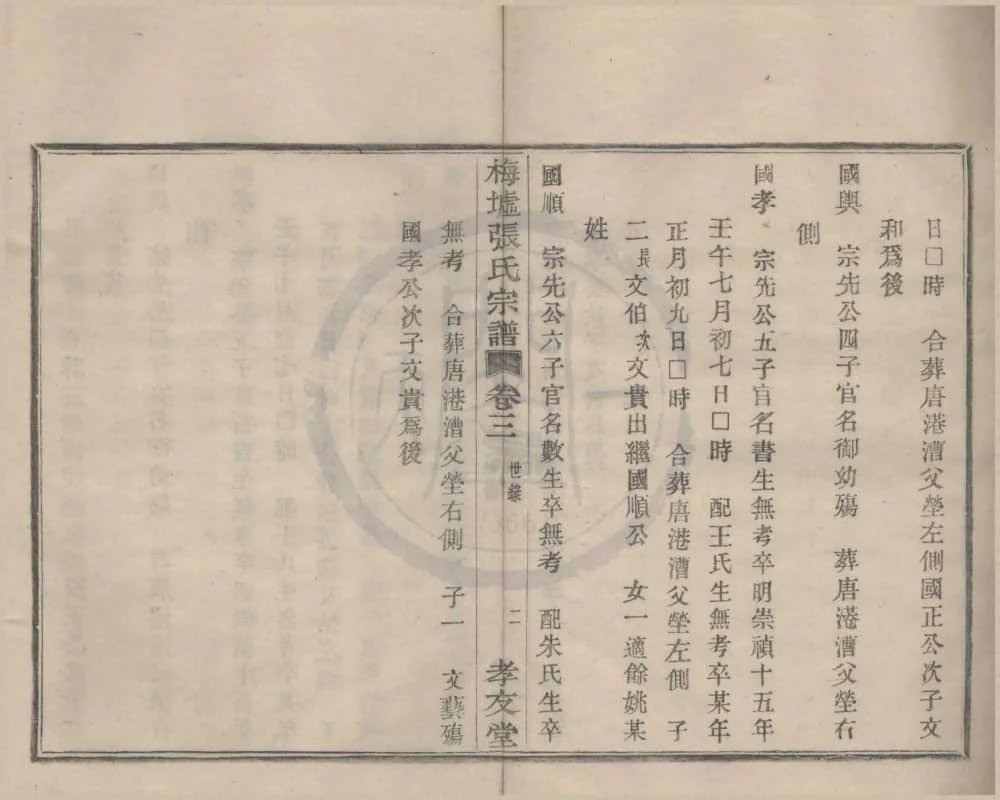 日□時 合葬唐港漕父塋左側國正公次子文
和爲後
國興 宗先公四子官名御幼殤 葬唐港漕父塋右
側
國孝 宗先公五子官名書生無考卒明崇禎十五年
壬午七月初七日□時 配王氏生無考卒某年
正月初九日□時 合葬唐港漕父塋左側 子
二長文伯次文貴出繼國順公 女一適餘姚某
姓
國順 宗先公六子官名數生卒無考 配朱氏生卒
梅墟張氏宗譜 卷三 世錄 二 孝友堂
無考 合葬唐港漕父塋右側 子一 文藝殤
國孝公次子文貴爲後